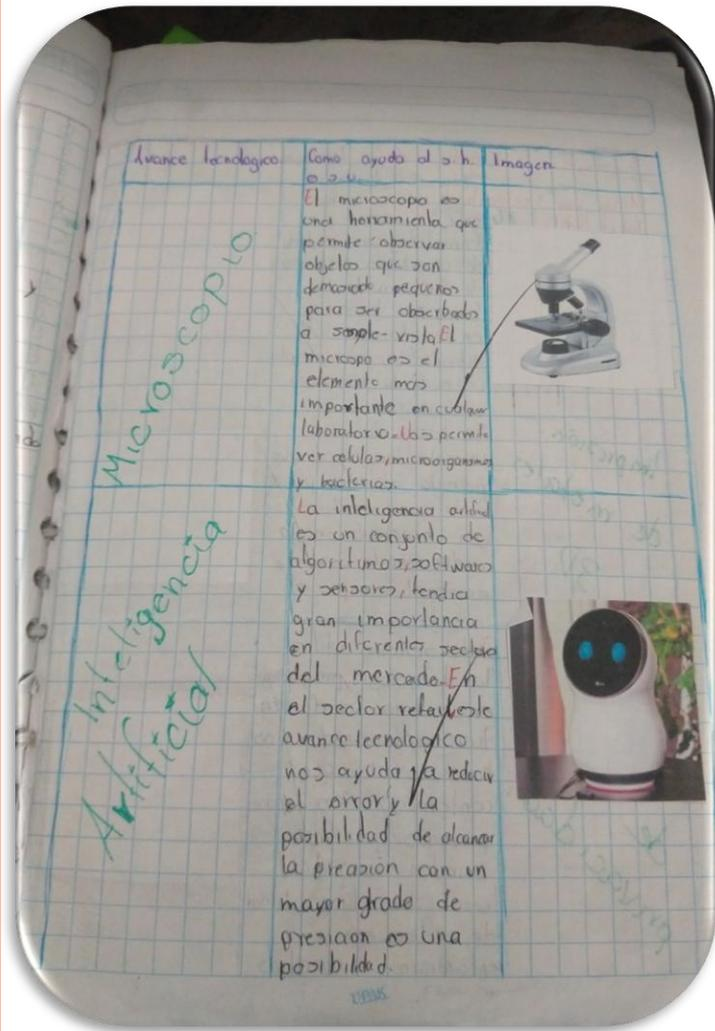 Avance tecnologico
Como ayudo al s.h.
o s.v.
Imagen
Microscopio
El microscopio es
una herramienta que
permite observar
objetos que son
demasiado pequeños
para ser obserbados
a simple-vista El
microspo es el
elemento mas
importante en
laboratorio. Nos permite
ver celulas, microorganismos
y bacterias.
Inteligencia
Artificial
La inteligencia artificial
es un conjunto de
algoritmos, softwares
y sensores, tendra
gran importancia
en diferentes sectores
del mercado. En
el sector retail, este
avance tecnologico
nos ayuda a reducir
el error y la
posibilidad de alcanzar
la precision con un
mayor grado de
presicion es una
posibilidad.